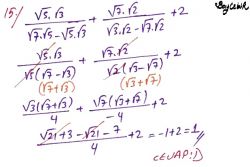 15-) (√5.√3)/(√7.√5-√5.√3) + (√7.√2)/(√3.√2-√7.√2) + 2
(√5.√3)/(√5(√7-√3)) + (√7.√2)/(√2(√3-√7)) + 2
(√7+√3) (√3+√7)
(√3(√7+√3))/4 + (√7(√3+√7))/-4 + 2
(√21+3-√21-7)/4 + 2 = -1+2 = 1 //
CEVAP:)